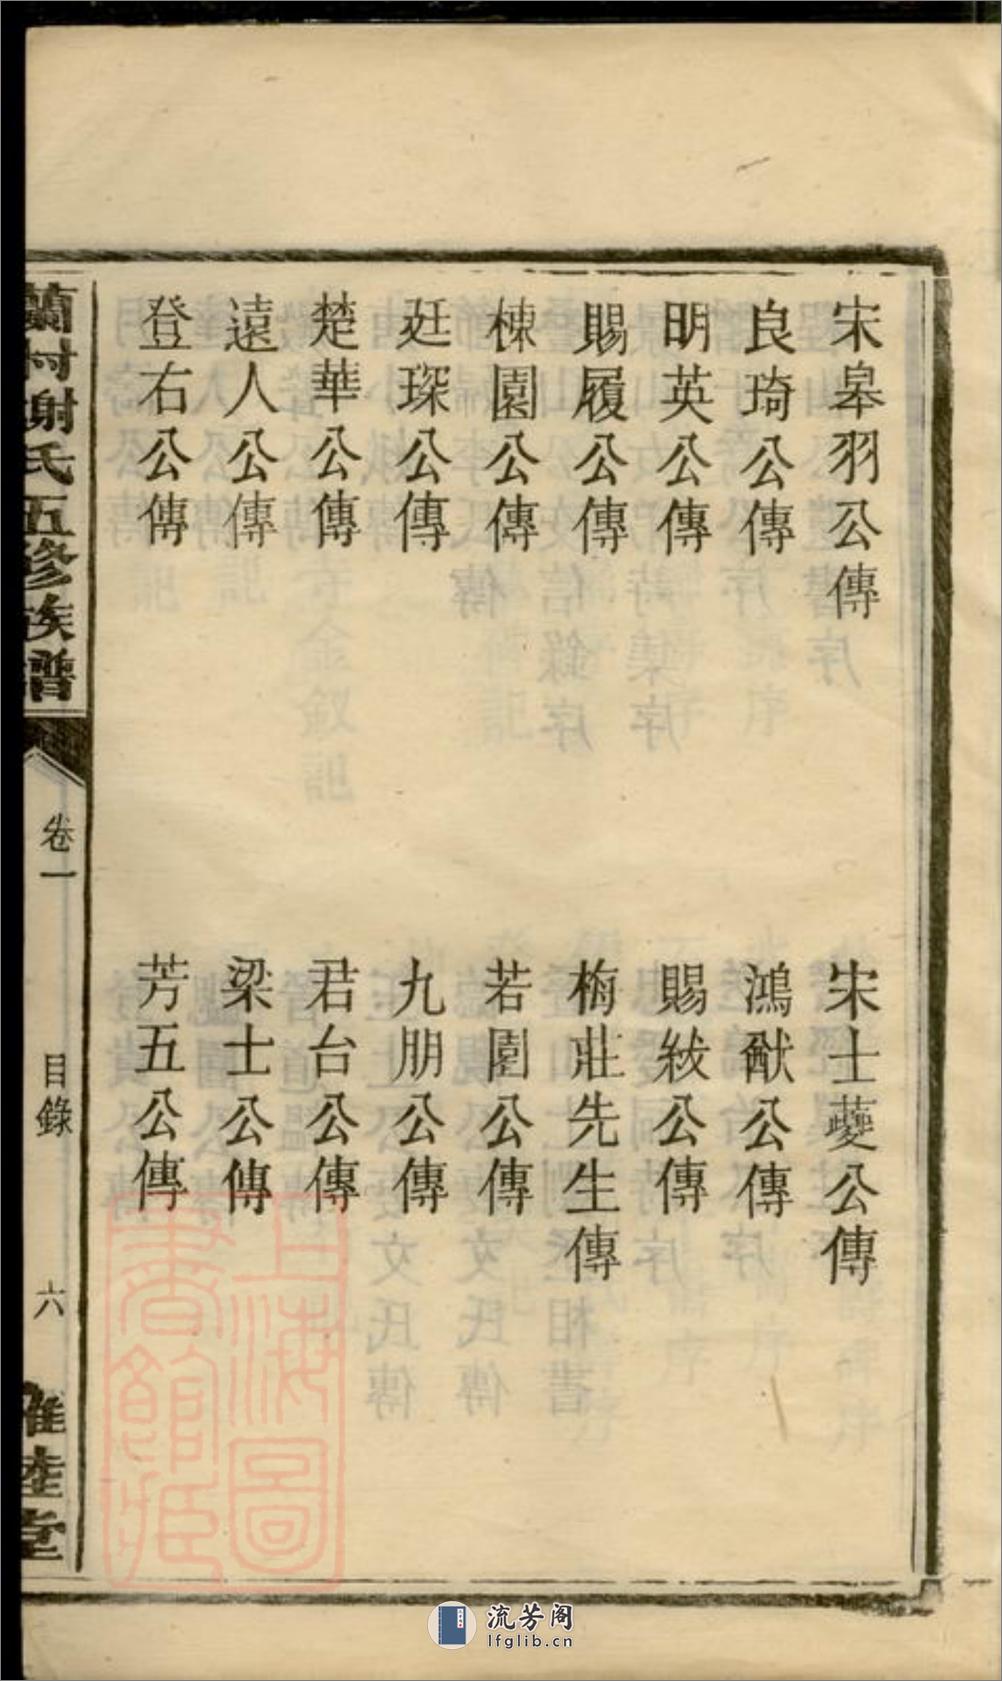 宋皋羽公傳
宋士薆公傳
良琦公傳
鴻猷公傳
明英公傳
賜紱公傳
賜履公傳
梅莊先生傳
棟園公傳
若園公傳
廷琛公傳
九朋公傳
楚華公傳
君台公傳
遠人公傳
梁士公傳
登右公傳
芳五公傳
蘭村謝氏五修族譜
卷一
目錄
六
雍睦堂
上海圖書館藏
流芳阁
lfglib.cn